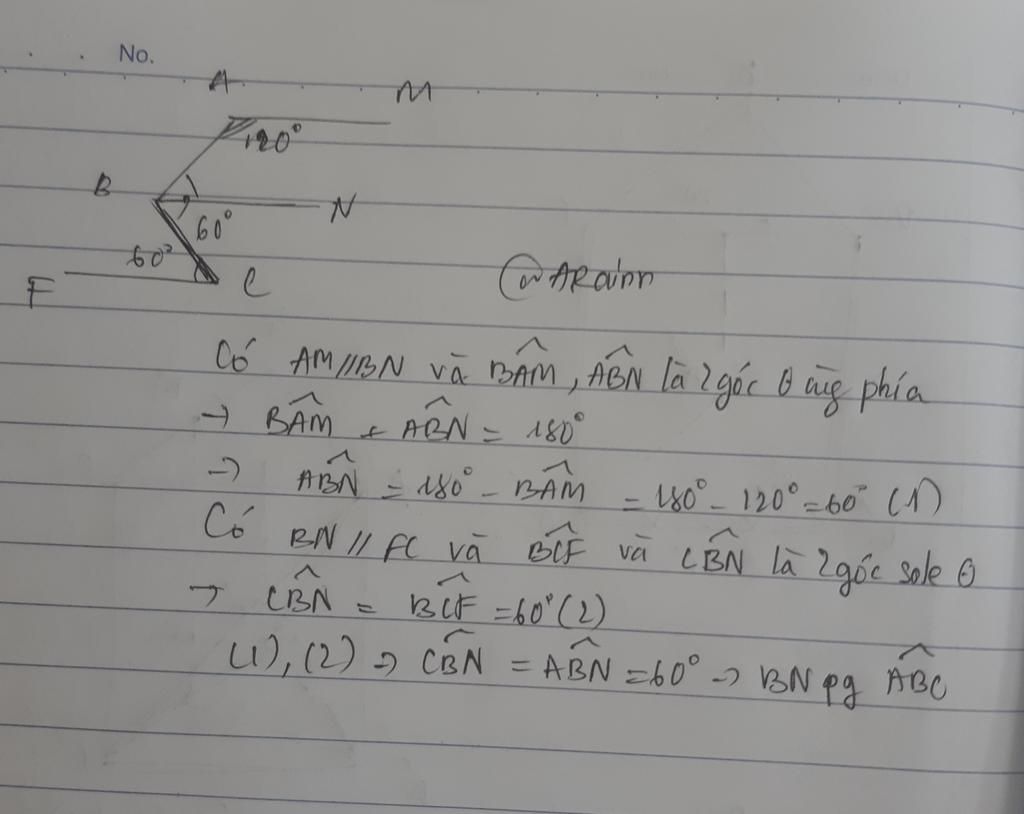 No.
A M
120°
B N
60°
60°
F C
@ARainn
Có AM//BN và BÂM, AB̂N là 2 góc θ cùng phía
→ BÂM + AB̂N = 180°
→ AB̂N = 180° - BÂM = 180° - 120° = 60° (1)
Có BN // FC và BĈF và CB̂N là 2 góc sole θ
→ CB̂N = BĈF = 60° (2)
(1), (2) → CB̂N = AB̂N = 60° → BN pg AB̂C